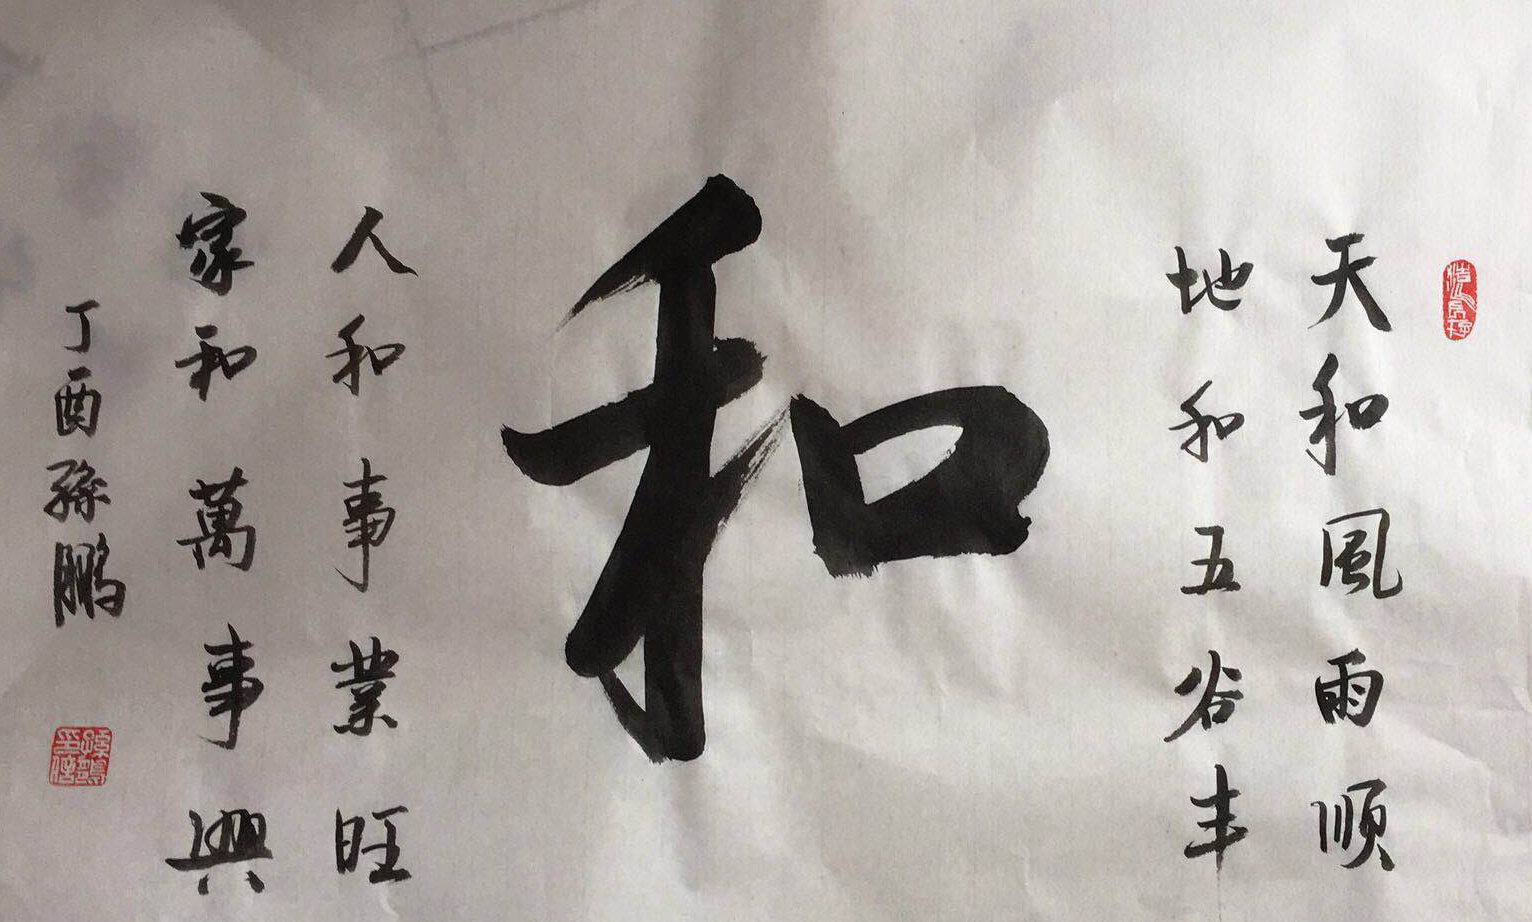 天和风雨顺
地和五谷丰
和
人和事業旺
家和萬事興
丁酉孫鹏